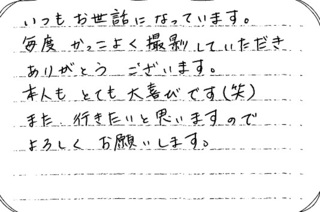 いつもお世話になっています。
毎度 かっこよく撮影していただき
ありがとう ございます。
本人も とても 大喜びです(笑)
また 行きたいと思いますので
よろしく お願いします。